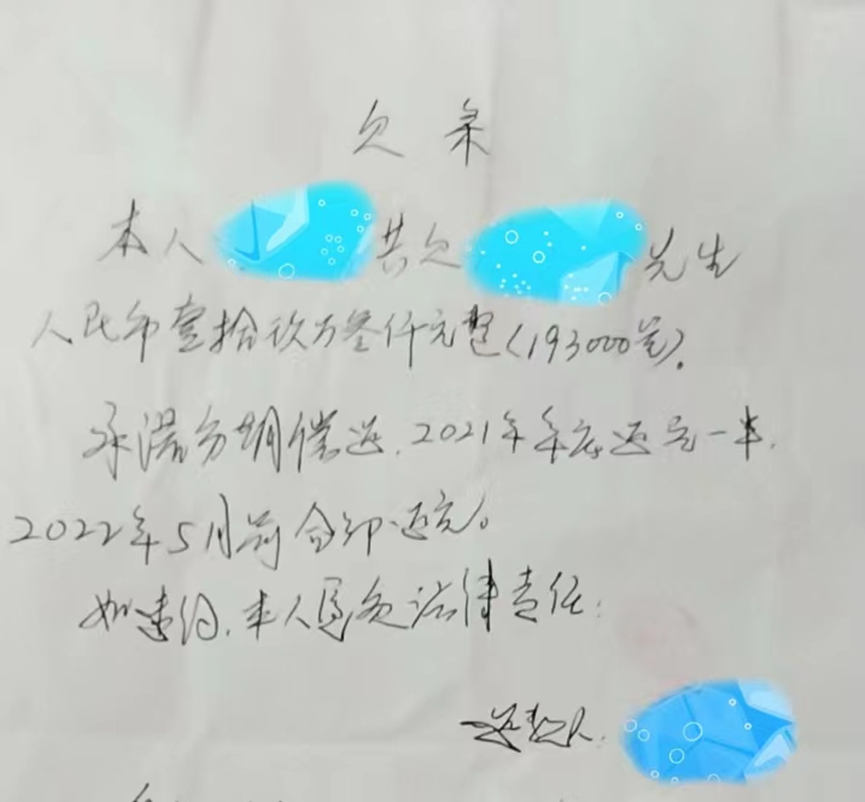 欠条
本人 共欠 先生
人民币壹拾玖万叁仟元整(193000元).
承诺分期偿还.2021年年底还完一半.
2022年5月前全部还完。
如违约.本人愿负法律责任.
还款人: